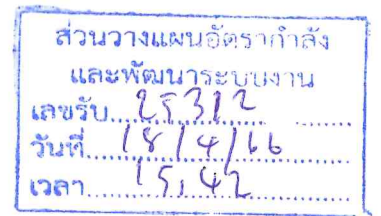 ส่วนวางแผนอัตรากำลัง
และพัฒนาระบบงาน
เลขรับ 25312
วันที่ 18/4/66
เวลา 15.42